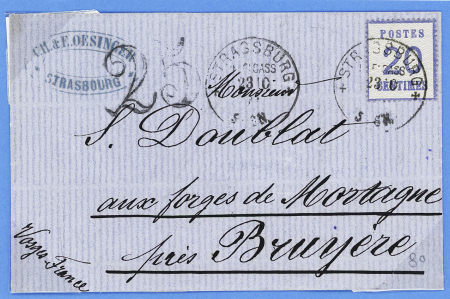 CH. & E. OESINGER
STRASBOURG
25
STRASSBURG
23 10
STRASSBURG
POSTES
20
CENTIMES
Monsieur
S. Doublat
aux forges de Mortagne
près Bruyère
Vosges-France
80